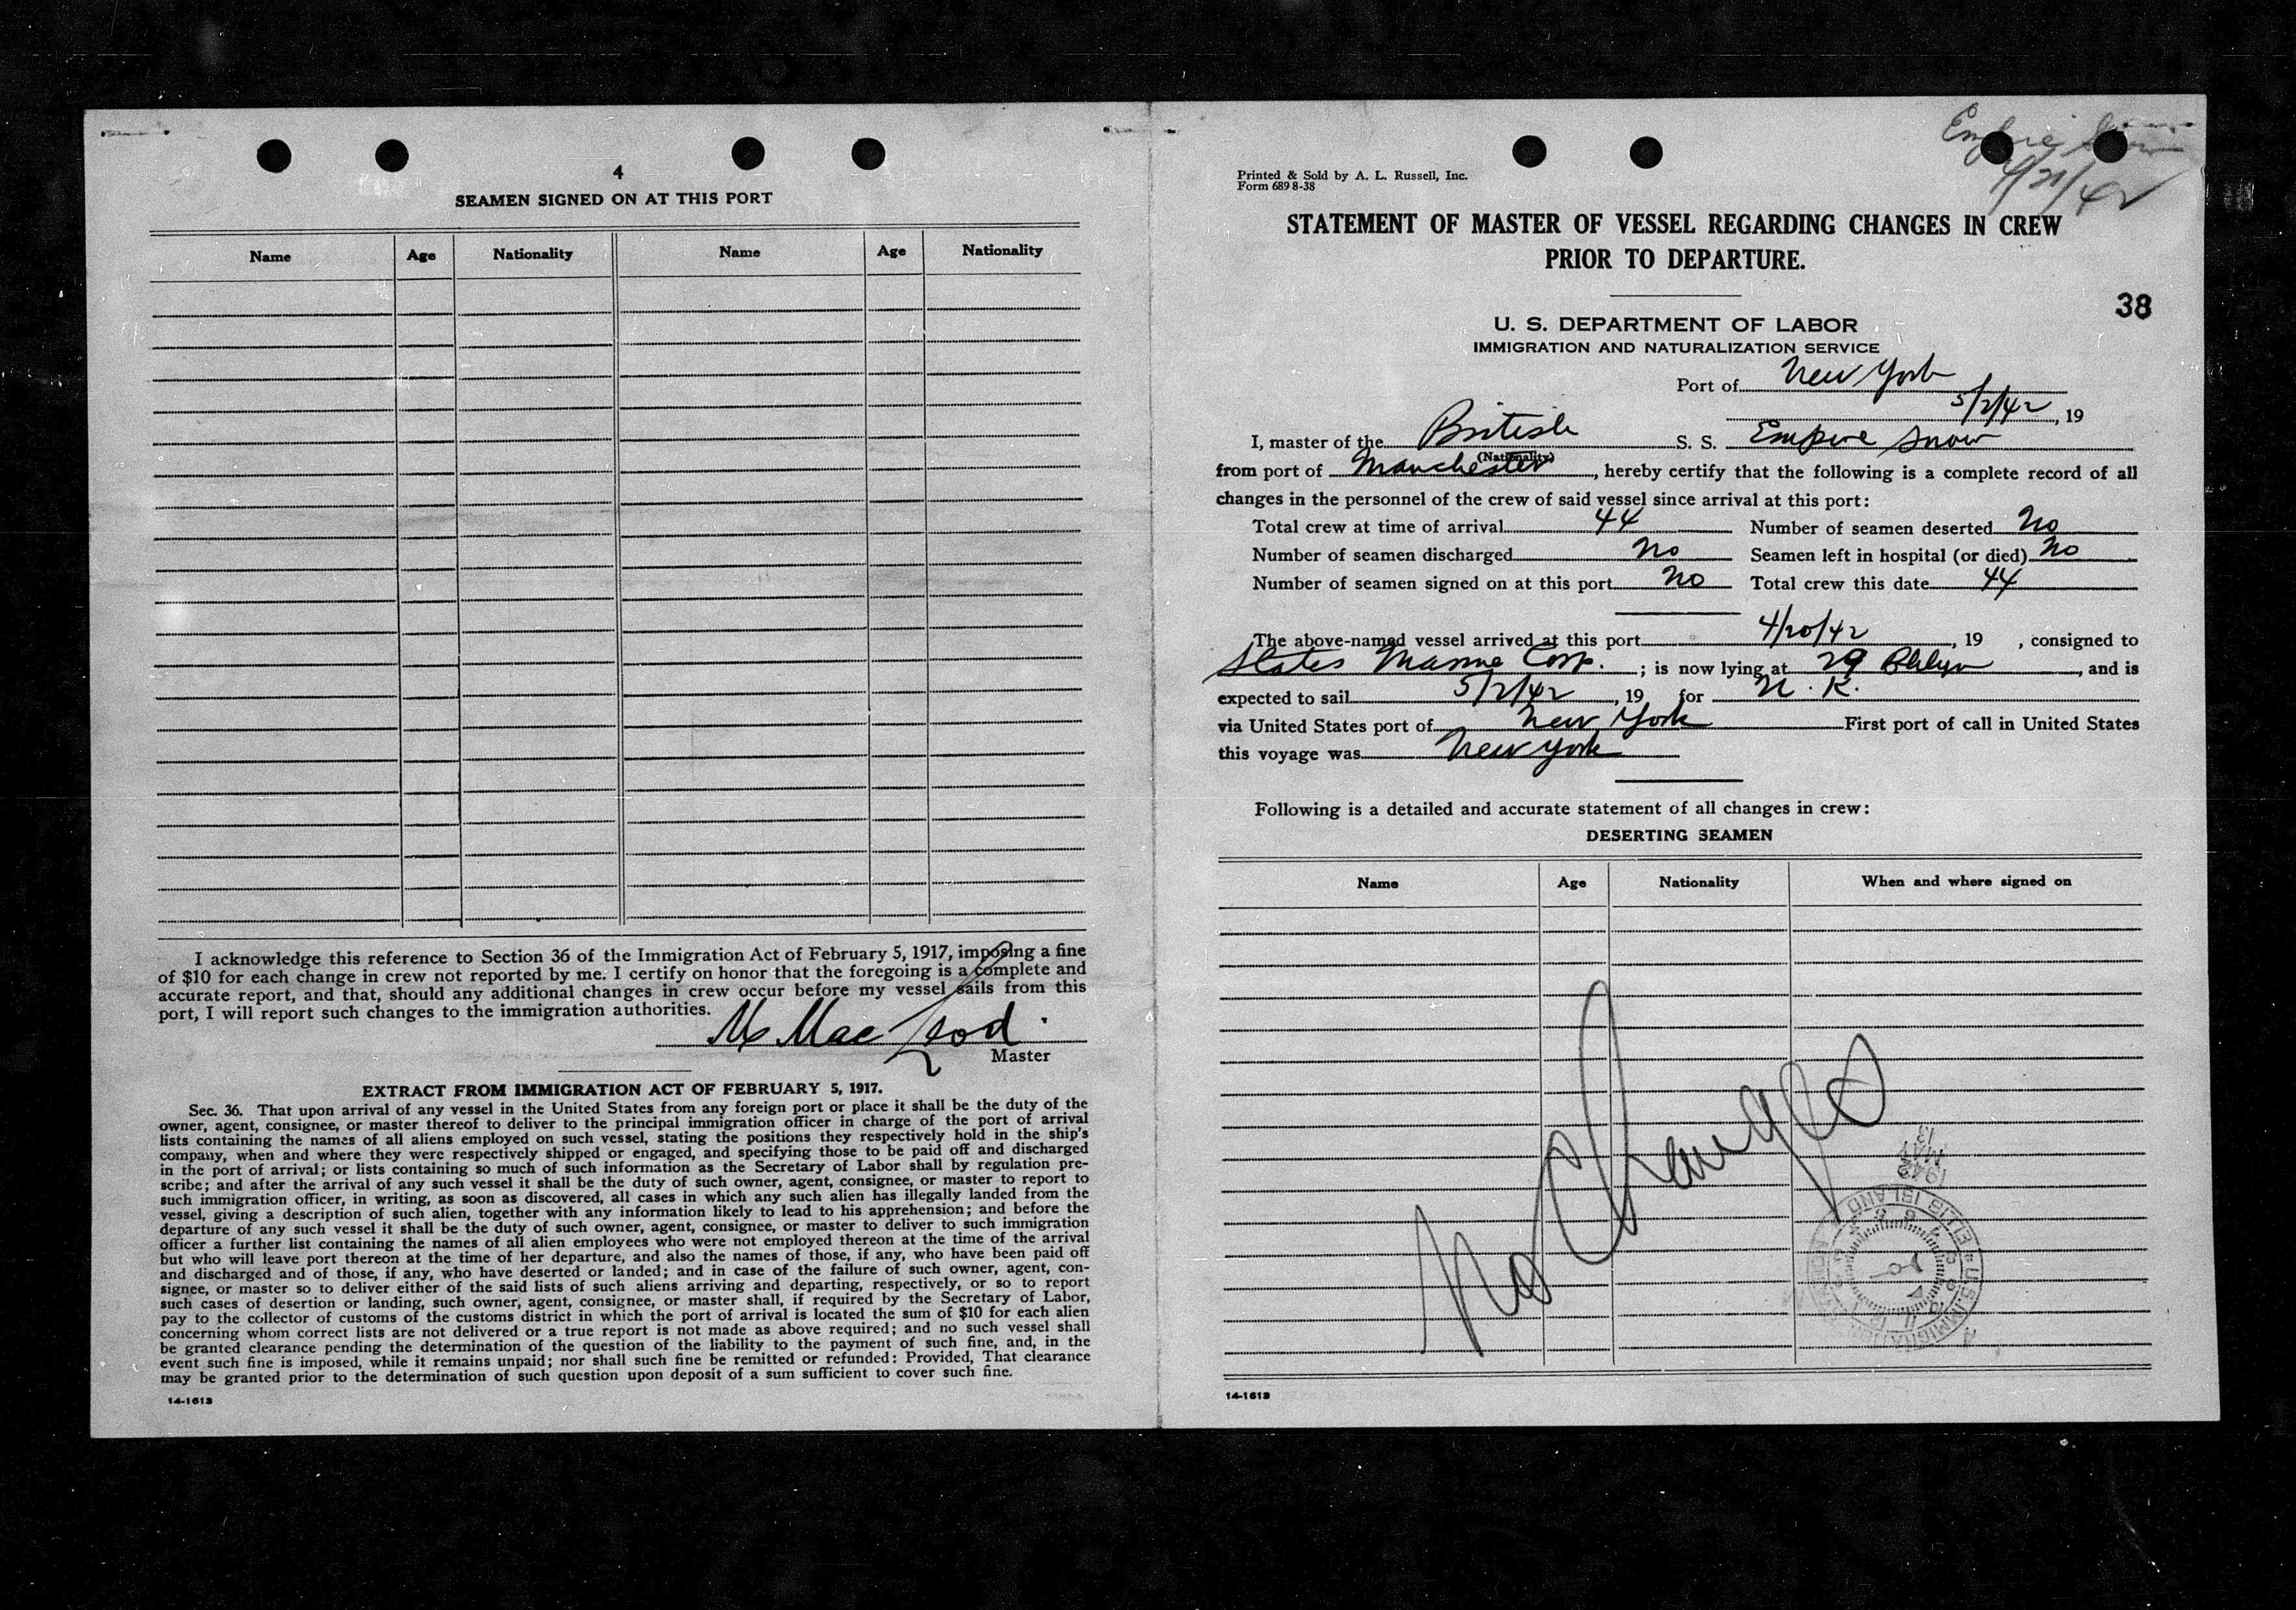 4
SEAMEN SIGNED ON AT THIS PORT
Name Age Nationality Name Age Nationality
I acknowledge this reference to Section 36 of the Immigration Act of February 5, 1917, imposing a fine
of $10 for each change in crew not reported by me. I certify on honor that the foregoing is a complete and
accurate report, and that, should any additional changes in crew occur before my vessel sails from this
port, I will report such changes to the immigration authorities.
M MacLeod.
Master
EXTRACT FROM IMMIGRATION ACT OF FEBRUARY 5, 1917.
Sec. 36. That upon arrival of any vessel in the United States from any foreign port or place it shall be the duty of the
owner, agent, consignee, or master thereof to deliver to the principal immigration officer in charge of the port of arrival
lists containing the names of all aliens employed on such vessel, stating the positions they respectively hold in the ship's
company, when and where they were respectively shipped or engaged, and specifying those to be paid off and discharged
in the port of arrival; or lists containing so much of such information as the Secretary of Labor shall by regulation pre-
scribe; and after the arrival of any such vessel it shall be the duty of such owner, agent, consignee, or master to report to
such immigration officer, in writing, as soon as discovered, all cases in which any such alien has illegally landed from the
vessel, giving a description of such alien, together with any information likely to lead to his apprehension; and before the
departure of any such vessel it shall be the duty of such owner, agent, consignee, or master to deliver to such immigration
officer a further list containing the names of all alien employees who were not employed thereon at the time of the arrival
but who will leave port thereon at the time of her departure, and also the names of those, if any, who have been paid off
and discharged and of those, if any, who have deserted or landed; and in case of the failure of such owner, agent, con-
signee, or master so to deliver either of the said lists of such aliens arriving and departing, respectively, or so to report
such cases of desertion or landing, such owner, agent, consignee, or master shall, if required by the Secretary of Labor,
pay to the collector of customs of the customs district in which the port of arrival is located the sum of $10 for each alien
concerning whom correct lists are not delivered or a true report is not made as above required; and no such vessel shall
be granted clearance pending the determination of the question of the liability to the payment of such fine, and, in the
event such fine is imposed, while it remains unpaid; nor shall such fine be remitted or refunded: Provided, That clearance
may be granted prior to the determination of such question upon deposit of a sum sufficient to cover such fine.
14-1613
Empire Snow
Printed & Sold by A. L. Russell, Inc.
Form 689 8-38
STATEMENT OF MASTER OF VESSEL REGARDING CHANGES IN CREW
PRIOR TO DEPARTURE.
38
U. S. DEPARTMENT OF LABOR
IMMIGRATION AND NATURALIZATION SERVICE
Port of New York
5/2/42, 19
I, master of the British S. S. Empire Snow
(Nationality)
from port of Manchester, hereby certify that the following is a complete record of all
changes in the personnel of the crew of said vessel since arrival at this port:
Total crew at time of arrival 44 Number of seamen deserted No
Number of seamen discharged No Seamen left in hospital (or died) No
Number of seamen signed on at this port No Total crew this date 44
The above-named vessel arrived at this port 4/20/42, 19 , consigned to
States Marine Corp. ; is now lying at 29 Bklyn, and is
expected to sail 5/2/42, 19 for U. K.
via United States port of New York First port of call in United States
this voyage was New York
Following is a detailed and accurate statement of all changes in crew:
DESERTING SEAMEN
Name Age Nationality When and where signed on
No Changes
1942
MAY
13
U.S. IMMIGRATION
ELLIS ISLAND
14-1613